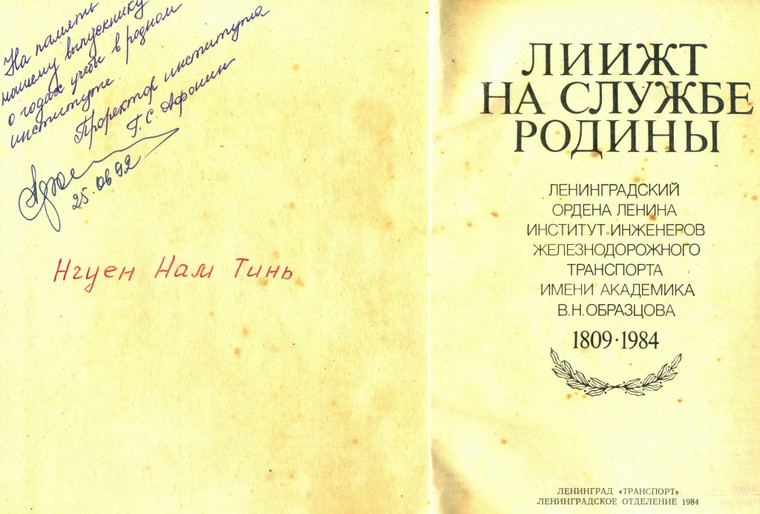 На память
нашему выпускнику
о годах учебы в родном
институте.
Проректор института
Г. С. Афонин
25.06.92
Нгуен Нам Тинь
ЛИИЖТ
НА СЛУЖБЕ
РОДИНЫ
ЛЕНИНГРАДСКИЙ
ОРДЕНА ЛЕНИНА
ИНСТИТУТ ИНЖЕНЕРОВ
ЖЕЛЕЗНОДОРОЖНОГО
ТРАНСПОРТА
ИМЕНИ АКАДЕМИКА
В.Н.ОБРАЗЦОВА
1809·1984
ЛЕНИНГРАД «ТРАНСПОРТ»
ЛЕНИНГРАДСКОЕ ОТДЕЛЕНИЕ 1984